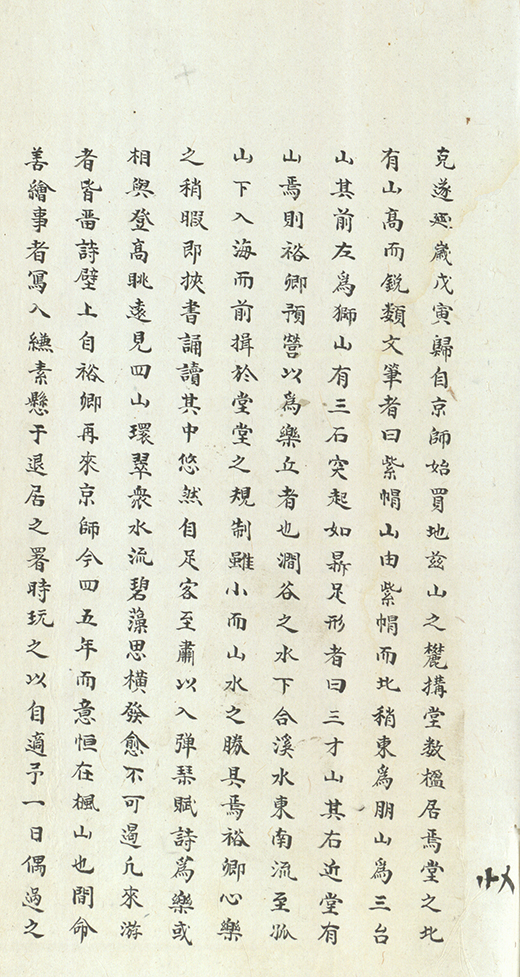 克遂歲戊寅歸自京師始買地茲山之麓搆堂数楹居焉堂之北
有山髙而鋭類文筆者曰紫帽山由紫帽而北稍東爲朋山爲三台
山其前左爲獅山有三石突起如鼎足形者曰三才山其右近堂有
山焉則裕卿預營以爲樂丘者也澗谷之水下合溪水東南流至孤
山下入海而前揖於堂堂之規制雖小而山水之勝具焉裕卿心樂
之稍暇即挾書誦讀其中悠然自足客至肅以入弾琹賦詩爲樂或
相與登髙眺遠見四山環翠衆水流碧藻思橫發愈不可遏凢來游
者皆畱詩壁上自裕卿再來京師今四五年而意恒在楓山也間命
善繪事者寫入縑素懸于退居之署時玩之以自適予一日偶過之